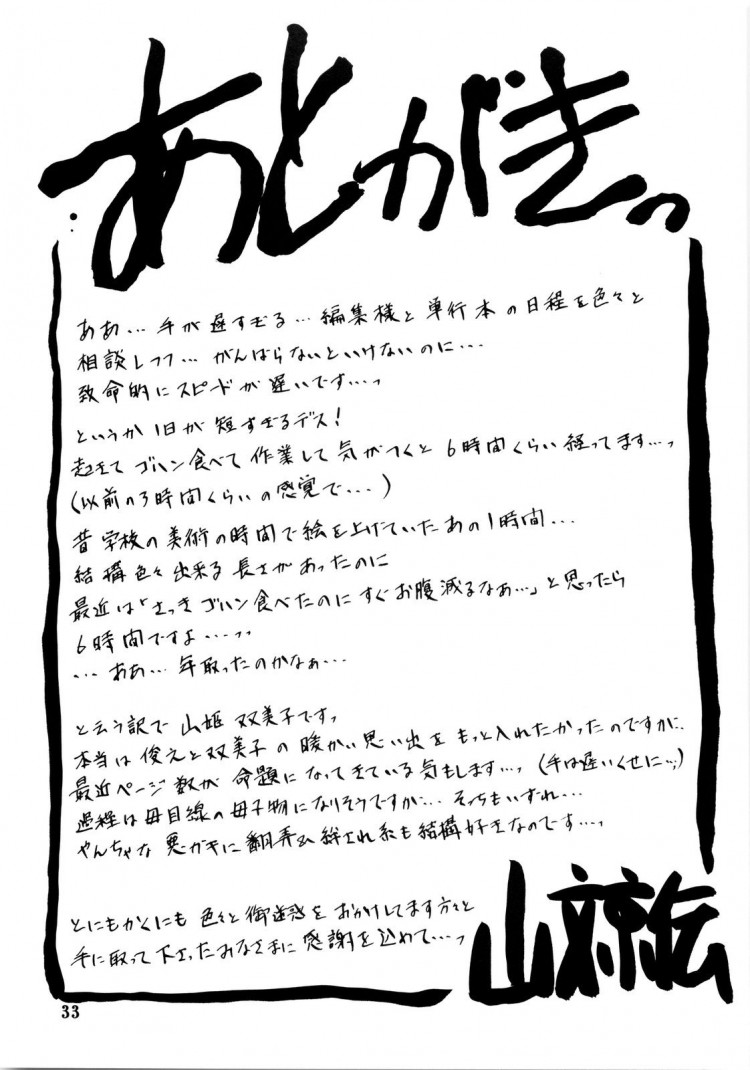 あとがきっ
ああ…手が遅すぎる…編集様と単行本の日程を色々と
相談しつつ…がんばらないといけないのに…
致命的にスピードが遅いです…っ
というか1日が短すぎるデス!
起きてゴハン食べて作業して気がつくと6時間くらい経ってます…っ
(以前の3時間くらいの感覚で…)
昔学校の美術の時間で絵を上げていたあの1時間…
結構色々出来る長さがあったのに
最近は「さっきゴハン食べたのにすぐお腹減るなぁ…」と思ったら
6時間ですよ…っっ
…ああ…年取ったのかなぁ…
と云う訳で山姫双美子ですっ
本当は俊之と双美子の暖かい思い出をもっと入れたかったのですが…
最近ページ数が命題になってきている気もします…っ(手は遅いくせに…;)
過程は母目線の母子物になりそうですが…そっちもいずれ…
やんちゃな悪ガキに翻弄され系も結構好きなのです…っ
とにもかくにも色々と御迷惑をおかけしてます方々と
手に取って下さったみなさまに感謝を込めて…っ
山文京伝
33